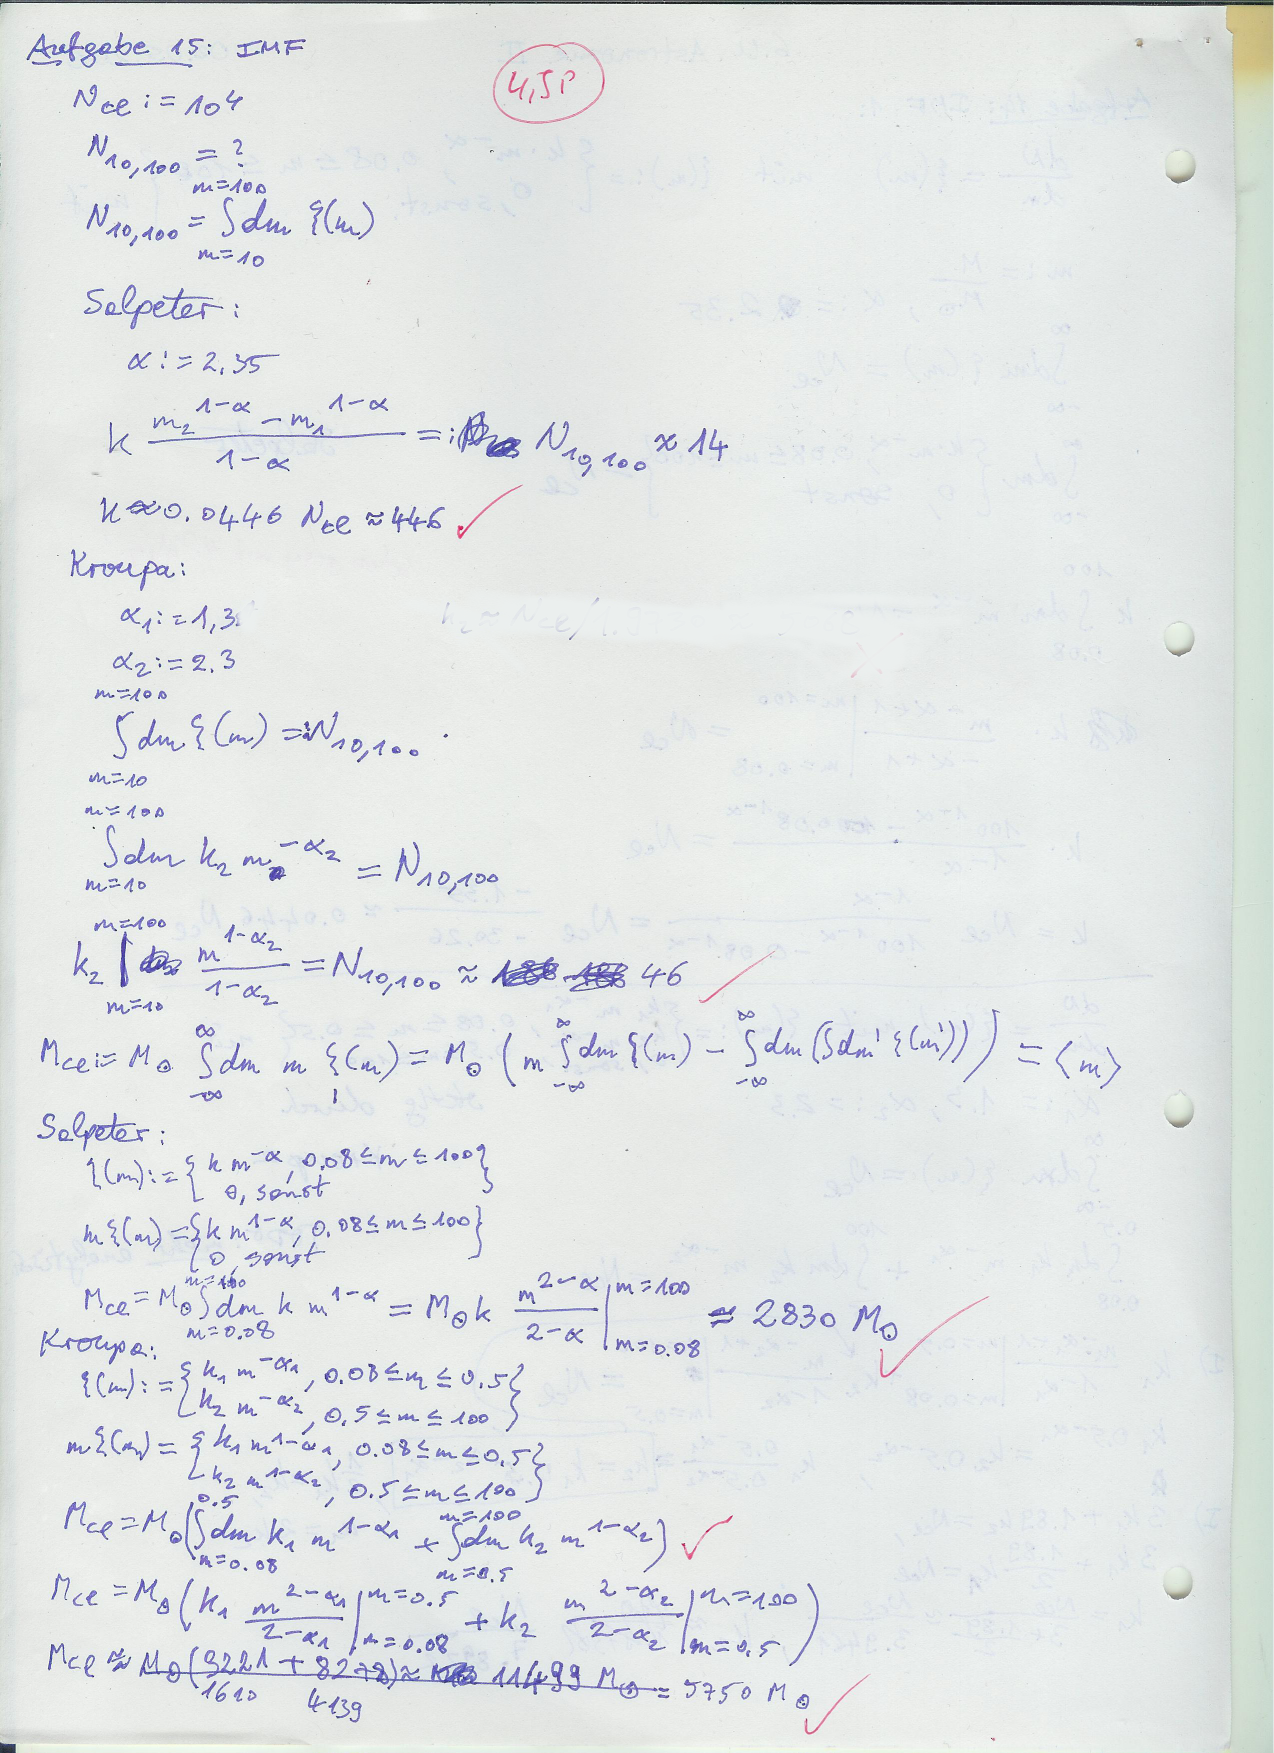 Aufgabe 15: IMF
4,5P
N_cl := 10^4
N_10,100 = ?
N_10,100 = ∫_{m=10}^{m=100} dm ξ(m)
Salpeter:
α := 2,35
k (m_2^{1-α} - m_1^{1-α})/(1-α) =: N_10,100 ≈ 14
k ≈ 0.0446 N_cl ≈ 446 ✓
Kroupa:
α_1 := 1,3
α_2 := 2.3
∫_{m=10}^{m=100} dm ξ(m) =: N_10,100
∫_{m=10}^{m=100} dm k_2 m^{-α_2} = N_10,100
k_2 |_{m=10}^{m=100} m^{1-α_2}/(1-α_2) = N_10,100 ≈ 46 ✓
M_cl := M_⊙ ∫_{-∞}^{∞} dm m ξ(m) = M_⊙ (m ∫_{-∞}^{∞} dm ξ(m) - ∫_{-∞}^{∞} dm (∫dm' ξ(m'))) = ⟨m⟩
Salpeter:
ξ(m) := {k m^{-α}, 0.08 ≤ m ≤ 100
0, sonst}
m ξ(m) = {k m^{1-α}, 0.08 ≤ m ≤ 100
0, sonst}
M_cl = M_⊙ ∫_{m=0.08}^{m=100} dm k m^{1-α} = M_⊙ k m^{2-α}/(2-α) |_{m=0.08}^{m=100} ≈ 2830 M_⊙ ✓
Kroupa:
ξ(m) := {k_1 m^{-α_1}, 0.08 ≤ m ≤ 0.5
k_2 m^{-α_2}, 0.5 ≤ m ≤ 100}
m ξ(m) = {k_1 m^{1-α_1}, 0.08 ≤ m ≤ 0.5
k_2 m^{1-α_2}, 0.5 ≤ m ≤ 100}
M_cl = M_⊙ (∫_{m=0.08}^{0.5} dm k_1 m^{1-α_1} + ∫_{m=0.5}^{m=100} dm k_2 m^{1-α_2}) ✓
M_cl = M_⊙ (k_1 m^{2-α_1}/(2-α_1) |_{m=0.08}^{m=0.5} + k_2 m^{2-α_2}/(2-α_2) |_{m=0.5}^{m=100})
M_cl ≈ M_⊙ (3221 + 8278) ≈ 11499 M_⊙ = 5750 M_⊙ ✓
1610 4139